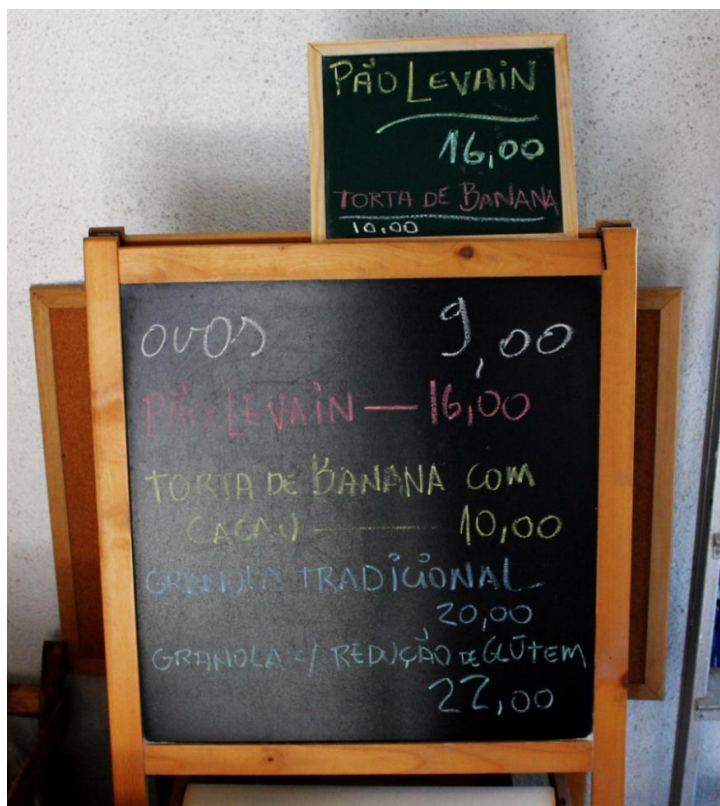 PÃO LEVAIN
16,00
TORTA DE BANANA
10,00
OVOS 9,00
PÃO LEVAIN — 16,00
TORTA DE BANANA COM
CACAU — 10,00
GRANOLA TRADICIONAL
20,00
GRANOLA C/ REDUÇÃO DE GLÚTEM
22,00